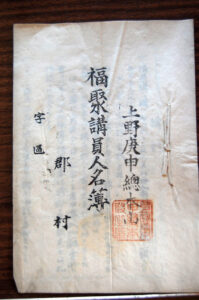 上野庚申總本山
福聚講員人名簿
郡 村
字 區